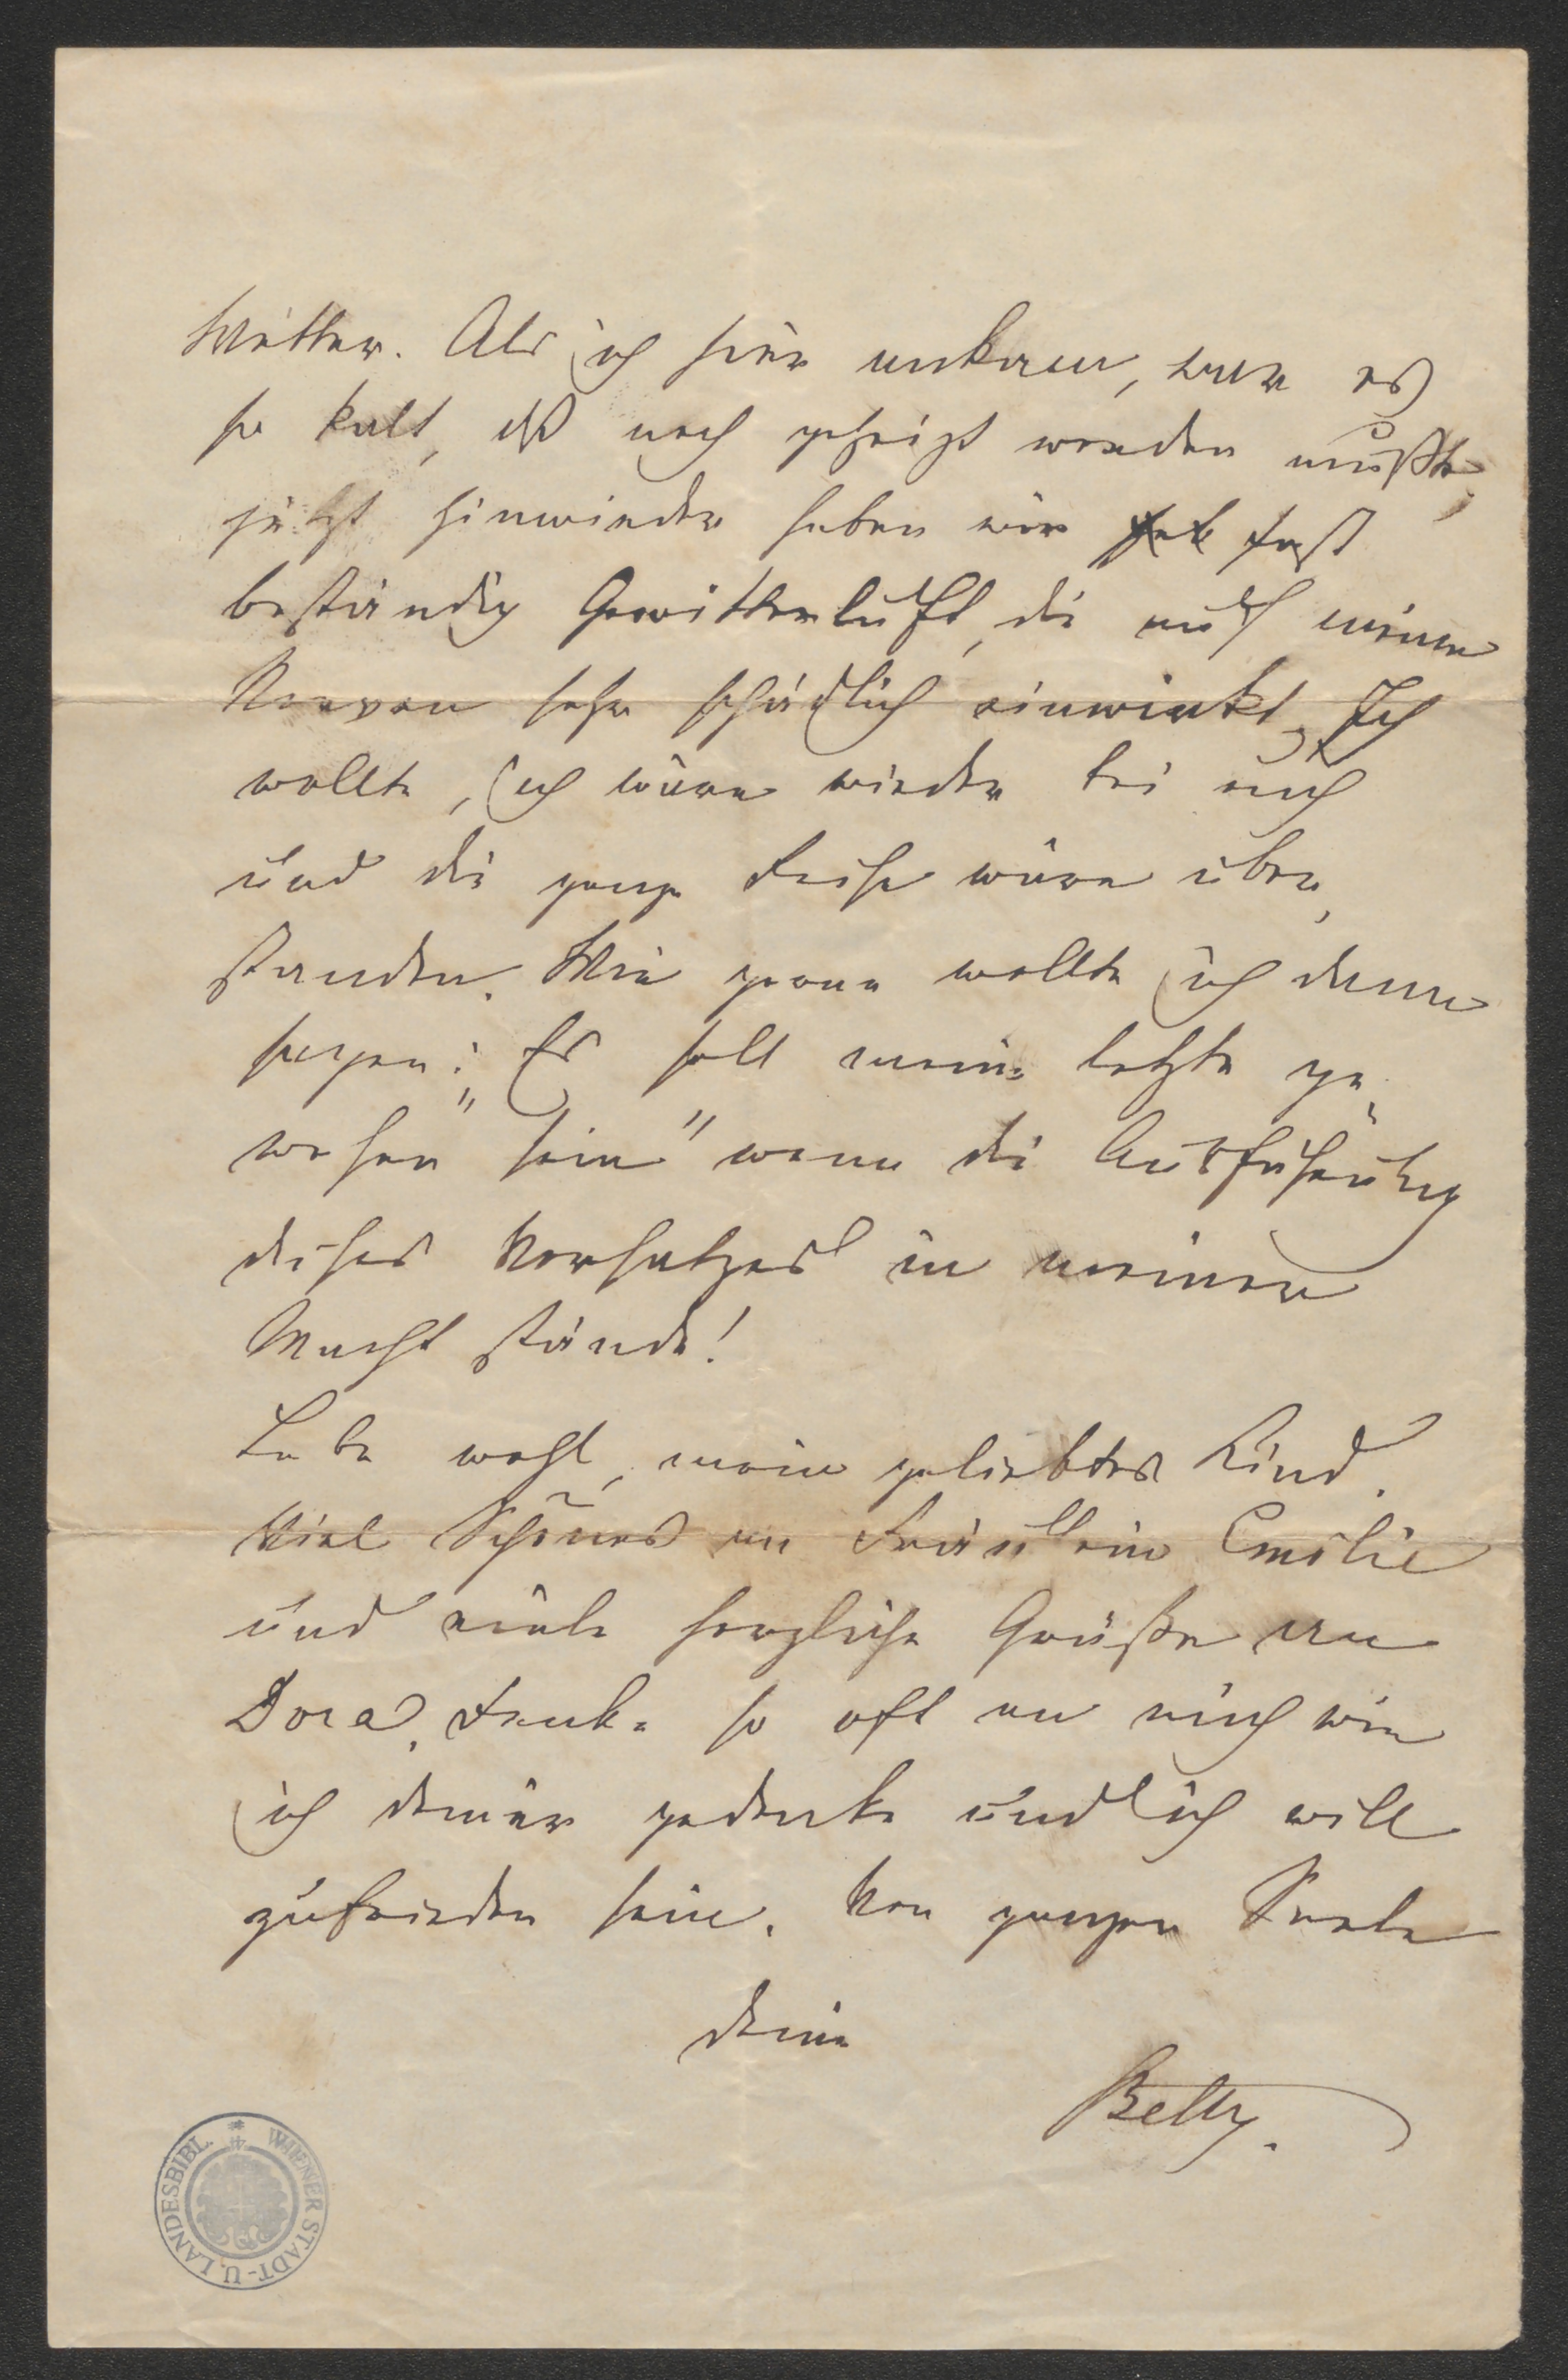 Wetter. Als ich hier ankam, war es
so kalt, daß noch geheizt werden mußte,
jetzt hinwieder haben wir fast
beständig Gewitterluft, die auf meine
Nerven sehr schädlich einwirkt. Ich
wollte, ich wäre wieder bei euch
und die ganze Reise wäre über,
standen. Wie gerne wollte ich dann
sagen: „Es soll meine letzte ge,
wesen sein" wenn die Ausführung
dieses Vorsatzes in meiner
Macht stände!
Lebe wohl, mein geliebtes Kind.
Viel Schönes an Fräulein Emilie
und viele herzliche Grüße an
Dora. Denke so oft an mich wie
ich deiner gedenke und ich will
zufrieden sein. Von ganzer Seele
deine
Betty.
WIENER STADT-U. LANDESBIBL.